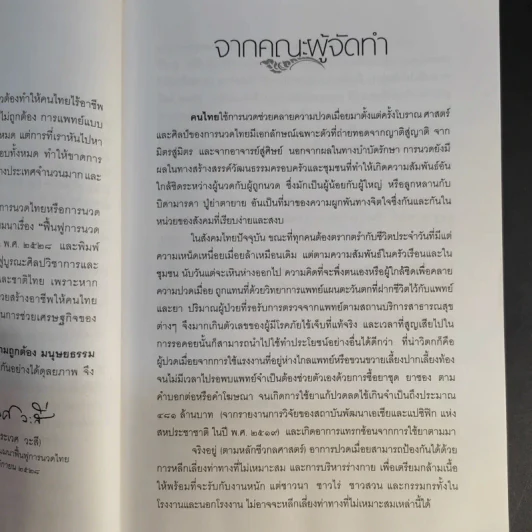 วต้องทำให้คนไทยไร้อาชีพ
ไม่ถูกต้อง การแพทย์แบบ
หมด แต่การที่เราหันไปหา
อบทั้งหมด ทำให้ขาดการ
างประเทศจำนวนมาก และ
การนวดไทยหรือการนวด
มนาเรื่อง "ฟื้นฟูการนวด
พ.ศ. ๒๕๒๘ และพิมพ์
บูรณะศิลปวิชาการและ
และชาติไทย เพราะหาก
วยสร้างอาชีพให้คนไทย
นการช่วยเศรษฐกิจของ
ามถูกต้อง มนุษยธรรม
กันอย่างได้ดุลยภาพ จึง
ระเวศ วะสี)
ฒนาฟื้นฟูการนวดไทย
๒๕๒๘
จากคณะผู้จัดทำ
คนไทยใช้การนวดช่วยคลายความปวดเมื่อยมาตั้งแต่ครั้งโบราณ ศาสตร์
และศิลป์ของการนวดไทยมีเอกลักษณ์เฉพาะตัวที่ถ่ายทอดจากญาติสู่ญาติ จาก
มิตรสู่มิตร และจากอาจารย์สู่ศิษย์ นอกจากผลในทางบำบัดรักษา การนวดยังมี
ผลในทางสร้างสรรค์วัฒนธรรมครอบครัวและชุมชนที่ทำให้เกิดความสัมพันธ์อัน
ใกล้ชิดระหว่างผู้นวดกับผู้ถูกนวด ซึ่งมักเป็นผู้น้อยกับผู้ใหญ่ หรือลูกหลานกับ
บิดามารดา ปู่ย่าตายาย อันเป็นที่มาของความผูกพันทางจิตใจซึ่งกันและกันใน
หน่วยของสังคมที่เรียบง่ายและสงบ
ในสังคมไทยปัจจุบัน ขณะที่ทุกคนต้องตรากตรำกับชีวิตประจำวันที่มีแต่
ความเหน็ดเหนื่อยเมื่อยล้าเหมือนเดิม แต่ความสัมพันธ์ในครัวเรือนและใน
ชุมชน นับวันแต่จะเหินห่างออกไป ความคิดที่จะพึ่งตนเองหรือผู้ใกล้ชิดเพื่อคลาย
ความปวดเมื่อย ถูกแทนที่ด้วยวิทยาการแพทย์แผนตะวันตกที่ฝากชีวิตไว้กับแพทย์
และยา ปริมาณผู้ป่วยที่รอรับการตรวจจากแพทย์ตามสถานบริการสาธารณสุข
ต่างๆ จึงมากเกินตัวเลขของผู้มีโรคภัยไข้เจ็บที่แท้จริง และเวลาที่สูญเสียไปใน
การรอคอยนั้นก็สามารถนำไปใช้ทำประโยชน์อย่างอื่นได้ดีกว่า ที่น่าวิตกก็คือ
ผู้ปวดเมื่อยจากการใช้แรงงานที่อยู่ห่างไกลแพทย์หรือขวนขวายเลี้ยงปากเลี้ยงท้อง
จนไม่มีเวลาไปรอพบแพทย์จำเป็นต้องช่วยตัวเองด้วยการซื้อยาชุด ยาซอง ตาม
คำบอกต่อหรือคำโฆษณา จนเกิดการใช้ยาแก้ปวดลดไข้เกินจำเป็นถึงประมาณ
๔๘๑ ล้านบาท (จากรายงานการวิจัยของสถาบันพัฒนาเอเชียและแปซิฟิก แห่ง
สหประชาชาติ ในปี พ.ศ. ๒๕๑๙) และเกิดอาการแทรกซ้อนจากการใช้ยาตามมา
จริงอยู่ (ตามหลักชีวกลศาสตร์) อาการปวดเมื่อยสามารถป้องกันได้ด้วย
การหลีกเลี่ยงท่าทางที่ไม่เหมาะสม และการบริหารร่างกาย เพื่อเตรียมกล้ามเนื้อ
ให้พร้อมที่จะรับกับงานหนัก แต่ชาวนา ชาวไร่ ชาวสวน และกรรมกรทั้งใน
โรงงานและนอกโรงงาน ไม่อาจจะหลีกเลี่ยงท่าทางที่ไม่เหมาะสมเหล่านี้ได้